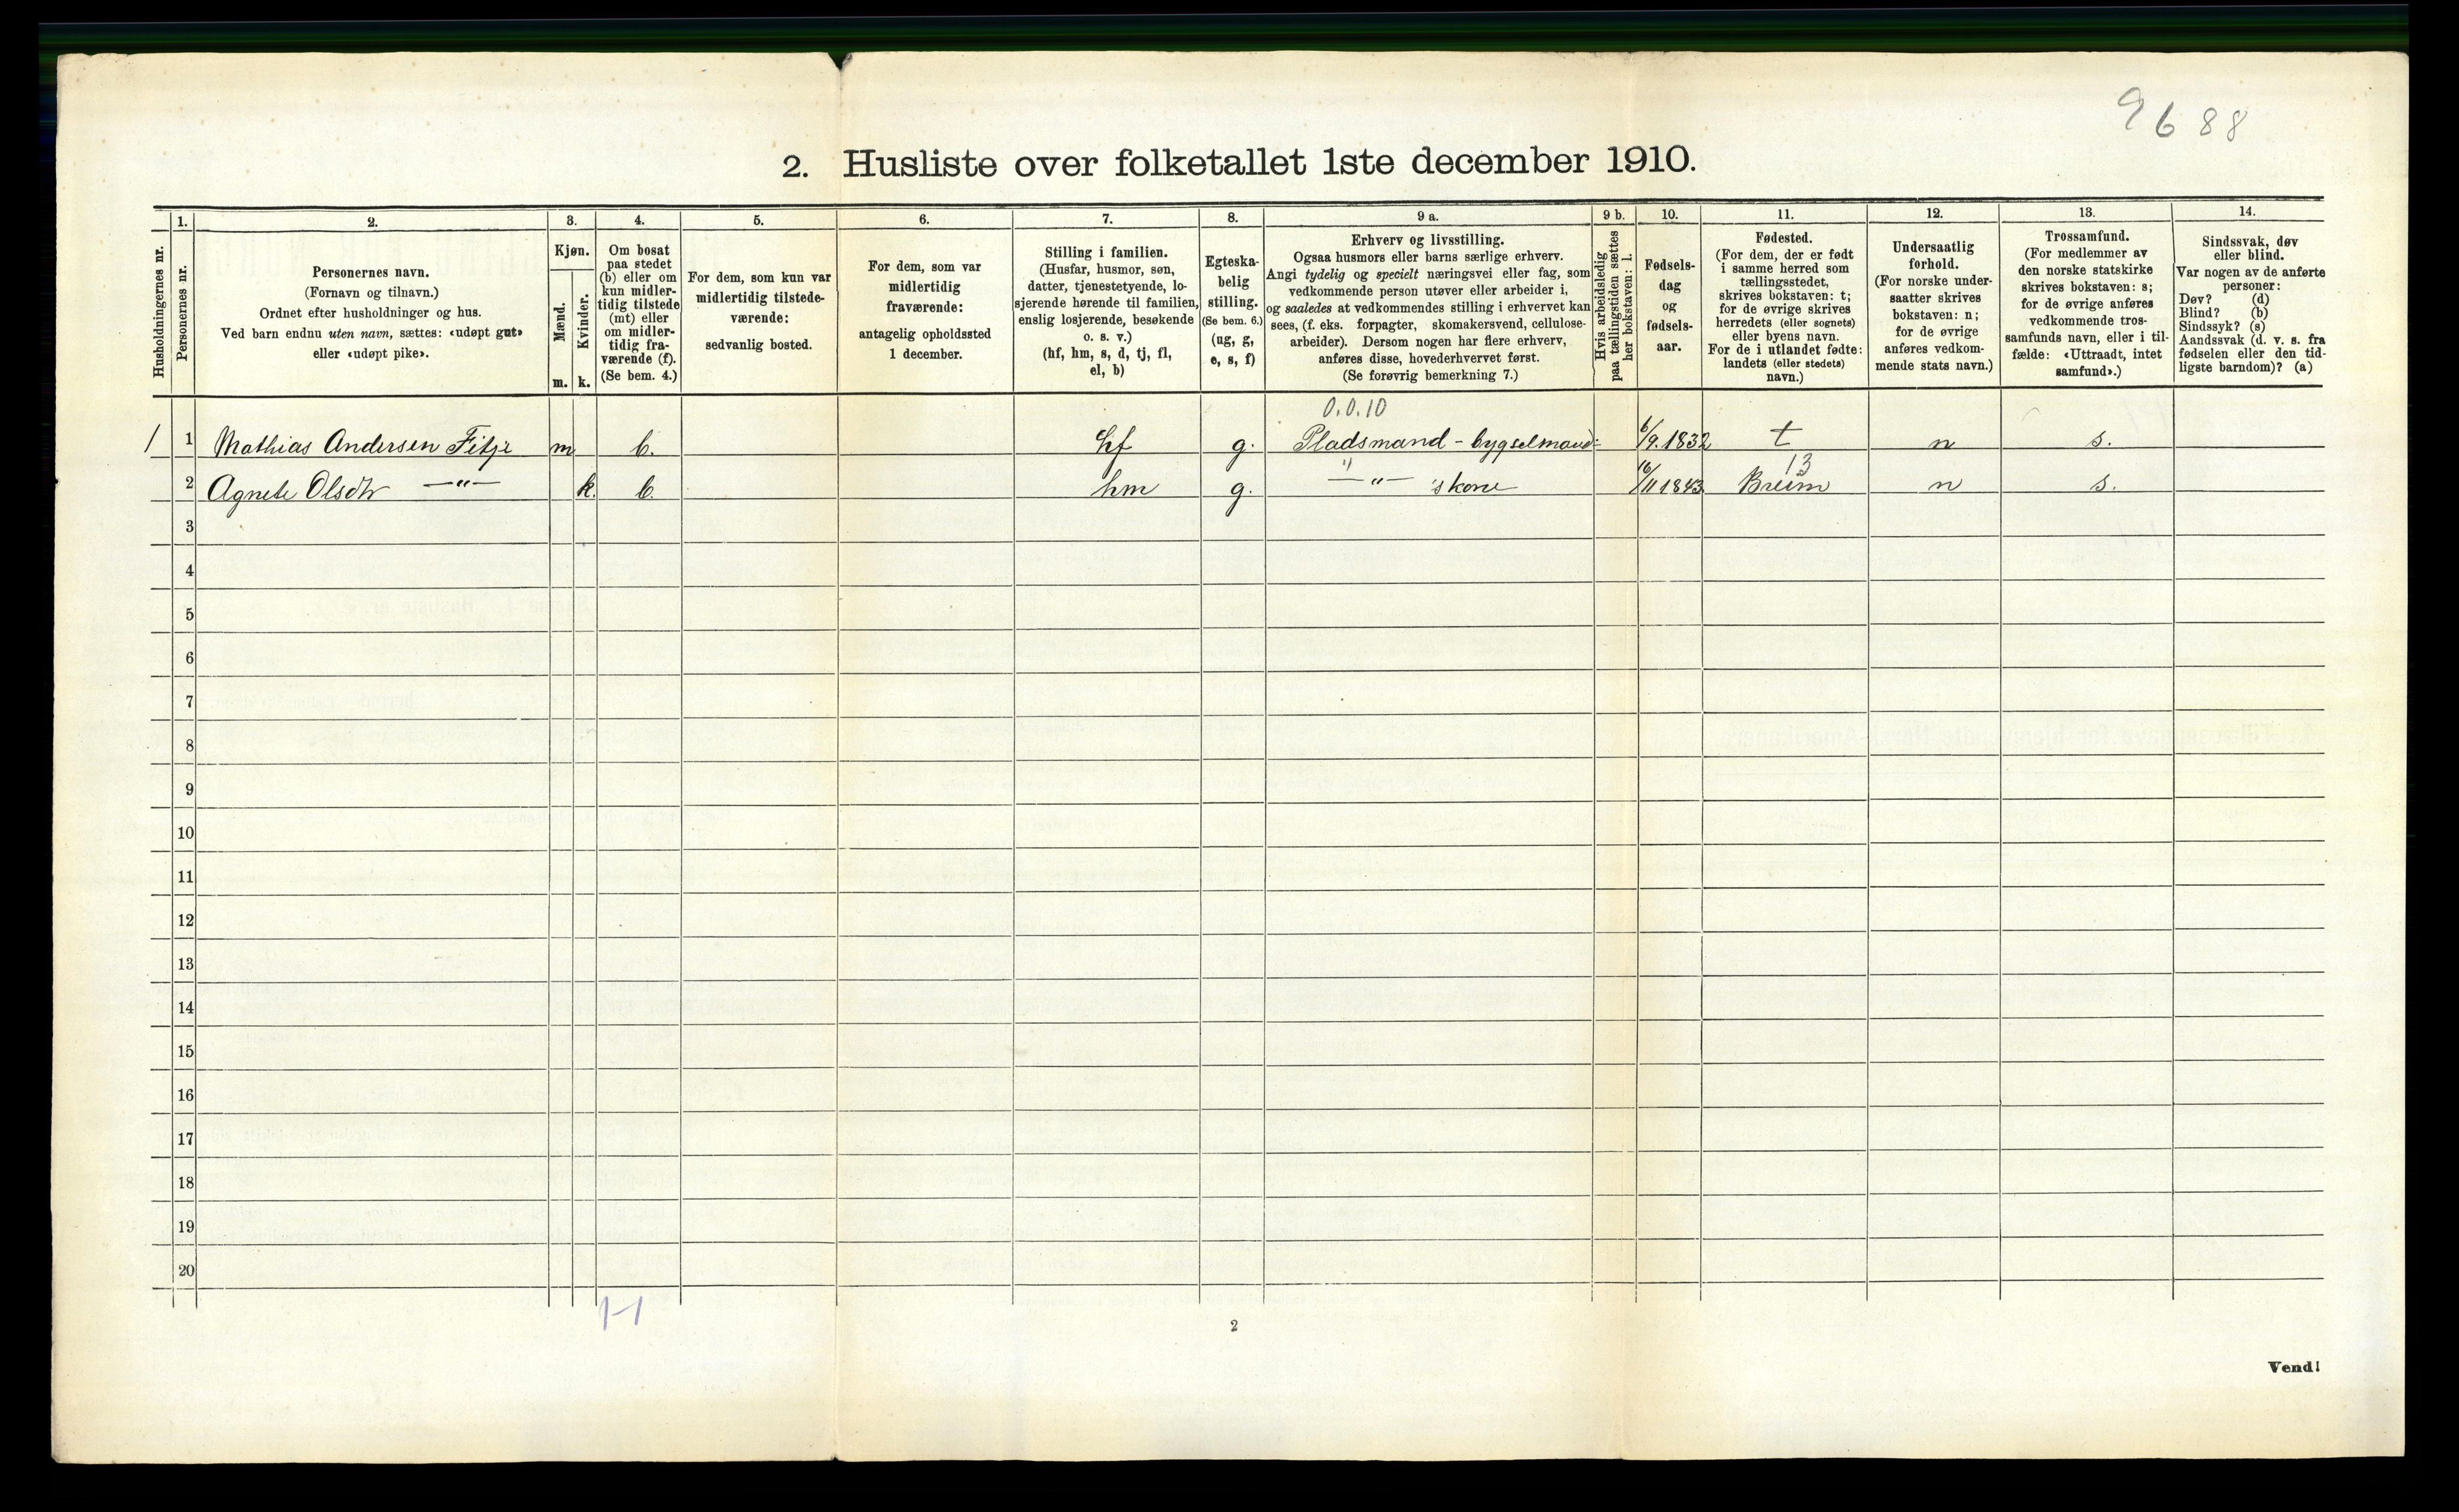 9688
2. Husliste over folketallet 1ste december 1910.
Husholdningernes nr.
1.
Personernes nr.
2.
Personernes navn.
(Fornavn og tilnavn.)
Ordnet efter husholdninger og hus.
Ved barn endnu uten navn, sættes: «udøpt gut»
eller «udøpt pike».
3.
Kjøn.
Mænd.
Kvinder.
m. k.
4.
Om bosat
paa stedet
(b) eller om
kun midler-
tidig tilstede
(mt) eller
om midler-
tidig fra-
værende (f).
(Se bem. 4.)
5.
For dem, som kun var
midlertidig tilstede-
værende:
sedvanlig bosted.
6.
For dem, som var
midlertidig
fraværende:
antagelig opholdssted
1 december.
7.
Stilling i familien.
(Husfar, husmor, søn,
datter, tjenestetyende, lo-
sjerende hørende til familien,
enslig losjerende, besøkende
o. s. v.)
(hf, hm, s, d, tj, fl,
el, b)
8.
Egteska-
belig
stilling.
(Se bem. 6.)
(ug, g,
e, s, f)
9 a.
Erhverv og livsstilling.
Ogsaa husmors eller barns særlige erhverv.
Angi tydelig og specielt næringsvei eller fag, som
vedkommende person utøver eller arbeider i,
og saaledes at vedkommendes stilling i erhvervet kan
sees, (f. eks. forpagter, skomakersvend, cellulose-
arbeider). Dersom nogen har flere erhverv,
anføres disse, hovederhvervet først.
(Se forøvrig bemerkning 7.)
9 b.
Hvis arbeidsledig
paa tællingstiden sættes
her bokstaven: l.
10.
Fødsels-
dag
og
fødsels-
aar.
11.
Fødested.
(For dem, der er født
i samme herred som
tællingsstedet,
skrives bokstaven: t;
for de øvrige skrives
herredets (eller sognets)
eller byens navn.
For de i utlandet fødte:
landets (eller stedets)
navn.)
12.
Undersaatlig
forhold.
(For norske under-
saatter skrives
bokstaven: n;
for de øvrige
anføres vedkom-
mende stats navn.)
13.
Trossamfund.
(For medlemmer av
den norske statskirke
skrives bokstaven: s;
for de øvrige anføres
vedkommende tros-
samfunds navn, eller i til-
fælde: «Uttraadt, intet
samfund».)
14.
Sindssvak, døv
eller blind.
Var nogen av de anførte
personer:
Døv? (d)
Blind? (b)
Sindssyk? (s)
Aandssvak (d. v. s. fra
fødselen eller den tid-
ligste barndom)? (a)
0.0.10
1 1 Mathias Andersen Fitje m b. hf g. Pladsmand - bygselmand: 6/9.1832 t n s.
" 13
2 Agnete Olsdtr —"— k. b. hm g. —"— 's kone 16/11 1843 Breim n s.
3
4
5
6
7
8
9
10
11
12
13
14
15
16
17
18
19
20
1-1
2
Vend!